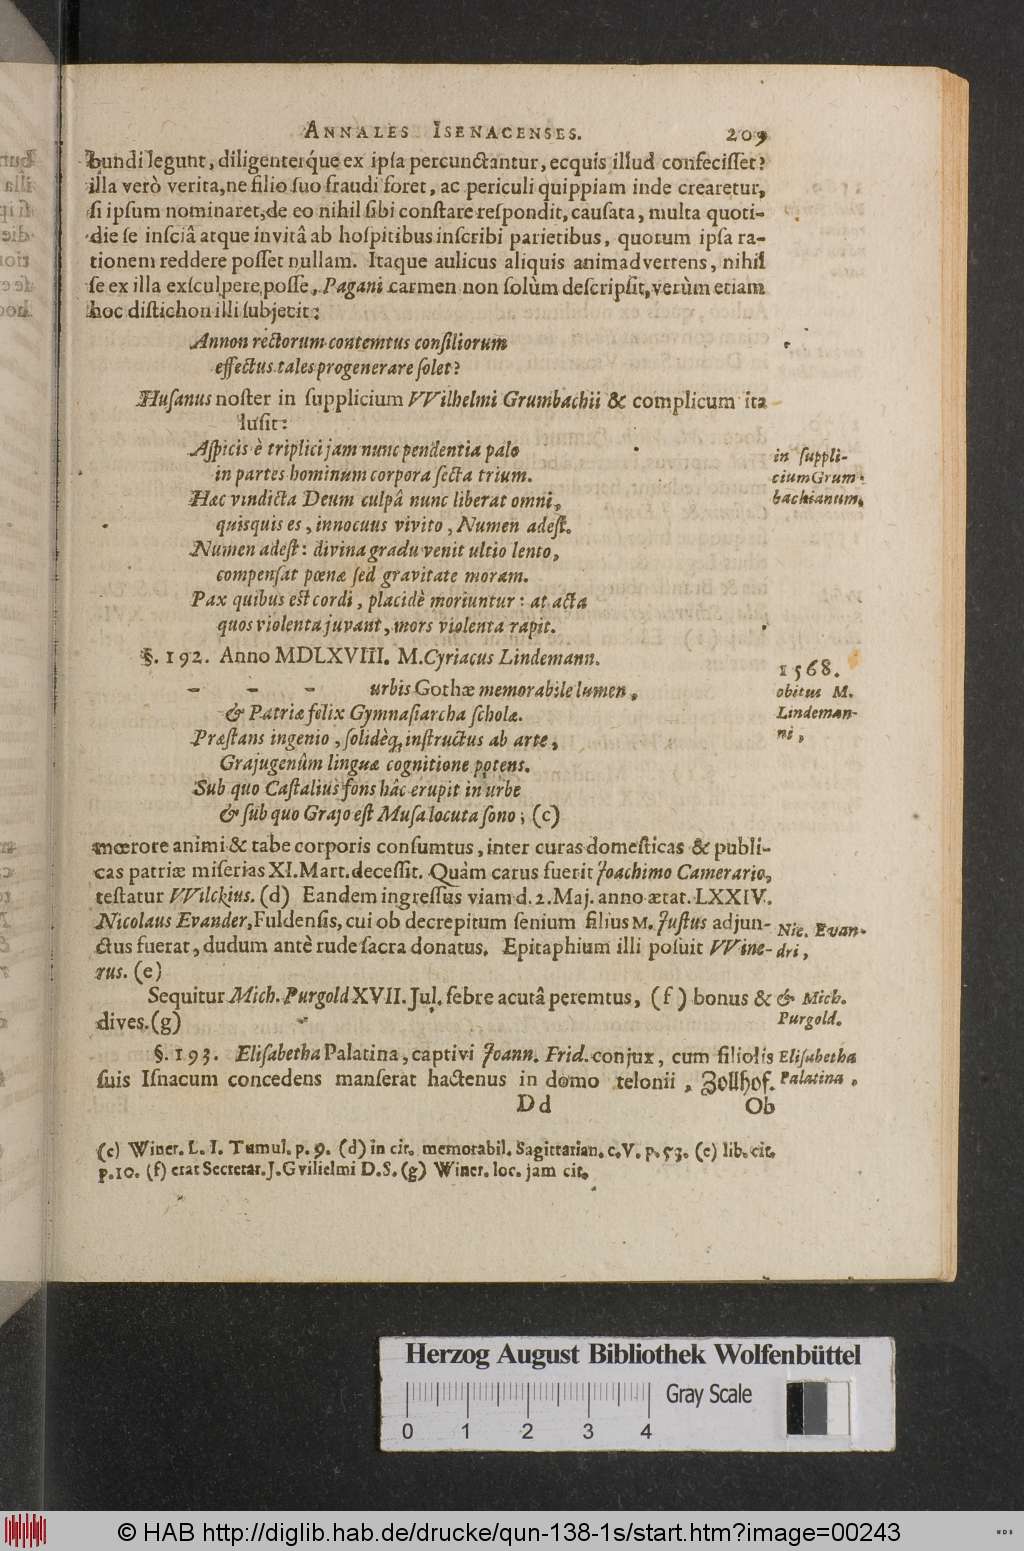 ANNALES ISENACENSES. 209
bundi legunt, diligenterq́ue ex ipſa percunctantur, ecquis illud confeciſſet?
illa verò verita, ne filio ſuo fraudi foret, ac periculi quippiam inde crearetur,
ſi ipſum nominaret, de eo nihil ſibi conſtare reſpondit, cauſata, multa quoti-
die ſe inſciâ atque invitâ ab hoſpitibus inſcribi parietibus, quorum ipſa ra-
tionem reddere poſſet nullam. Itaque aulicus aliquis animadvertens, nihil
ſe ex illa exſculpere poſſe, Pagani carmen non ſolùm deſcripſit, verùm etiam
hoc diſtichon illi ſubjecit:
Annon rectorum contemtus conſiliorum
effectus tales progenerare ſolet?
Huſanus noſter in ſupplicium VVilhelmi Grumbachii & complicum ita
luſit:
Aſpicis è triplici jam nunc pendentia palo
in partes hominum corpora ſecta trium.
Hac vindicta Deum culpâ nunc liberat omni,
quisquis es, innocuus vivito, Numen adeſt.
Numen adeſt: divina gradu venit ultio lento,
compenſat pœnæ ſed gravitate moram.
Pax quibus eſt cordi, placidè moriuntur: at acta
quos violenta juvant, mors violenta rapit.
in ſuppli-
cium Grum-
bachianum.
§. 192. Anno MDLXVIII. M. Cyriacus Lindemann.
- - - urbis Gothæ memorabile lumen,
& Patriæ felix Gymnaſiarcha ſcholæ.
Præſtans ingenio, ſolidèq; inſtructus ab arte,
Grajugenûm linguæ cognitione potens.
Sub quo Caſtalius fons hâc erupit in urbe
& ſub quo Grajo eſt Muſa locuta ſono; (c)
1568.
obitus M.
Lindeman-
ni,
mœrore animi & tabe corporis conſumtus, inter curas domeſticas & publi-
cas patriæ miſerias XI. Mart. deceſſit. Quàm carus fuerit Joachimo Camerario,
teſtatur VVilckius. (d) Eandem ingreſſus viam d. 2. Maj. anno ætat. LXXIV.
Nicolaus Evander, Fuldenſis, cui ob decrepitum ſenium filius M. Juſtus adjun-
ctus fuerat, dudum antè rude ſacra donatus. Epitaphium illi poſuit VVine-
rus. (e)
Nic. Evan-
dri,
Sequitur Mich. Purgold XVII. Jul. febre acutâ peremtus, (f) bonus &
dives. (g)
& Mich.
Purgold.
§. 193. Eliſabetha Palatina, captivi Joann. Frid. conjux, cum filiolis
ſuis Iſnacum concedens manſerat hactenus in domo telonii, Zollhof.
Eliſabetha
Palatina,
Dd Ob
(c) Winer. L. I. Tumul. p. 9. (d) in cit. memorabil. Sagittarian. c. V. p. 53. (e) lib. cit.
p. 10. (f) erat Secretar. J. Gvilielmi D. S. (g) Winer. loc. jam cit.
Herzog August Bibliothek Wolfenbüttel
Gray Scale
0 1 2 3 4
© HAB http://diglib.hab.de/drucke/qun-138-1s/start.htm?image=00243